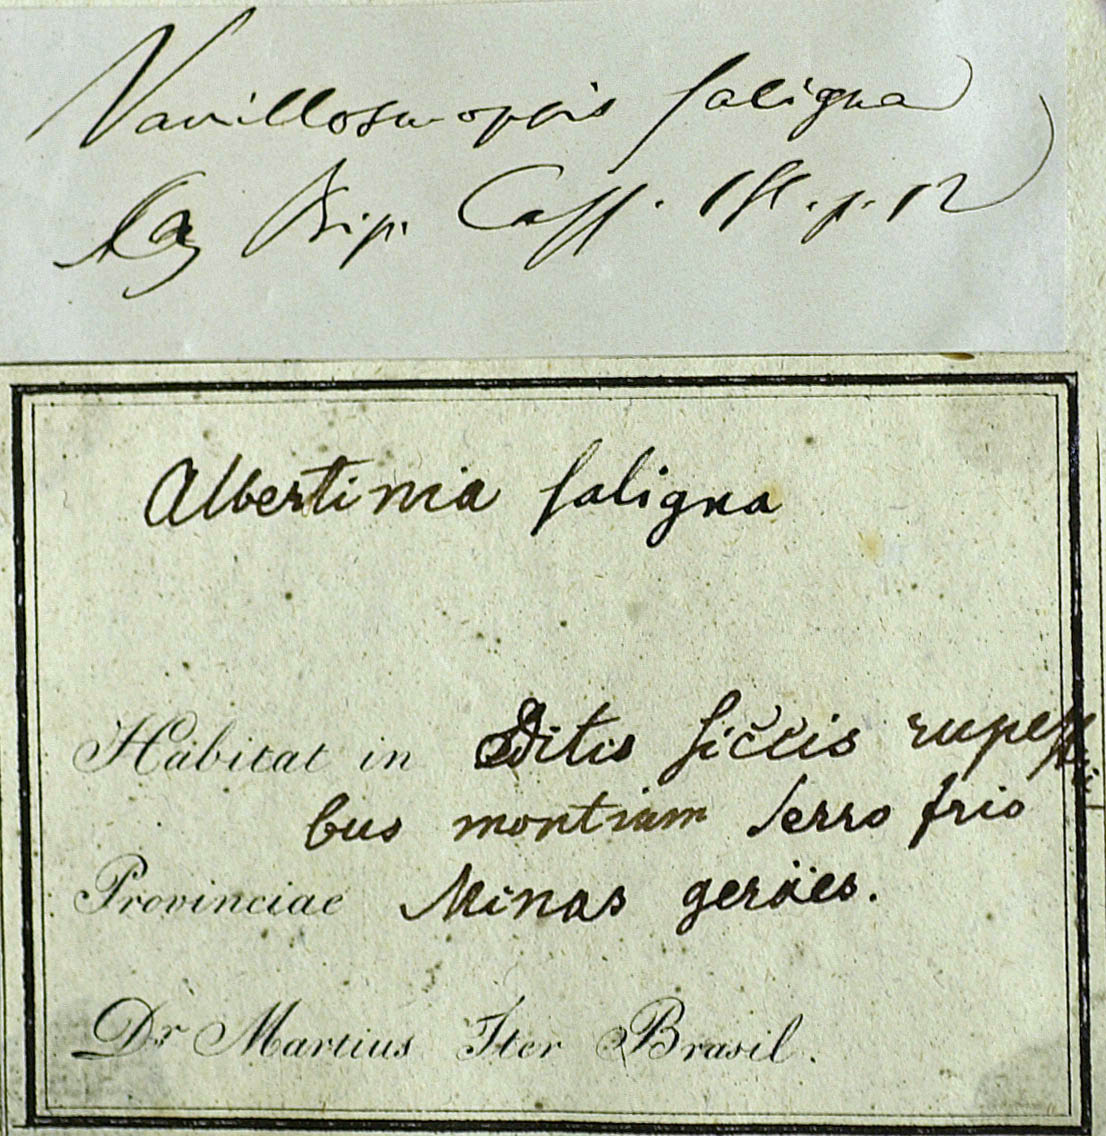 Vanillosmopsis saligna
Bip. Cass. p. 12
Albertinia saligna
Habitat in editis siccis rupestri
bus montium Serro frio
Provinciae Minas geräes.
Dr Martius Iter Brasil.